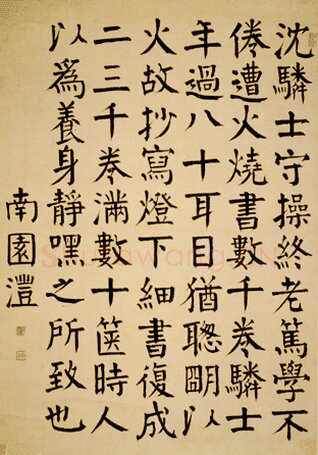 沈驎士守操終老篤學不
倦遭火燒書數千卷驎士
年過八十耳目猶聰明以
火故抄寫燈下細書復成
二三千卷滿數十篋時人
以爲養身靜嘿之所致也
南園灃